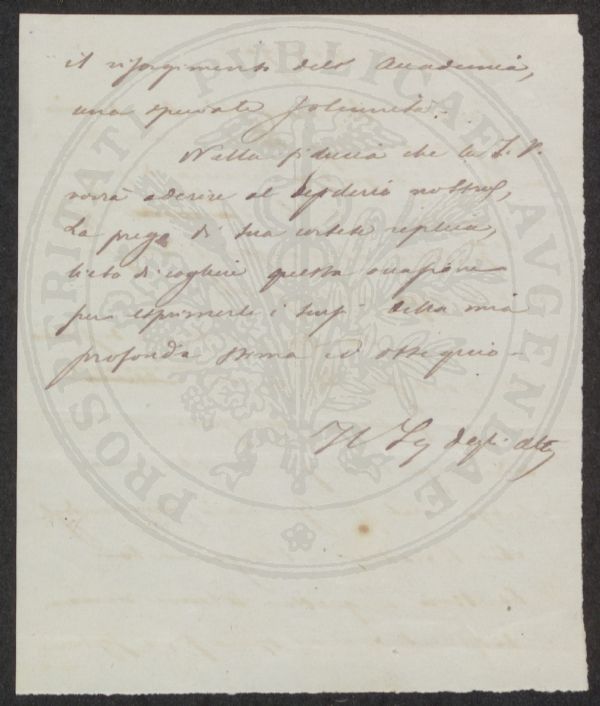 il risorgimento dell' Accademia,
una speciale solennità.
Nella fiducia che la S. V.
vorrà aderire al desiderio nostro,
La prego di sua cortese replica,
lieto di cogliere questa occasione
per esprimerle i sensi della mia
profonda stima ed ossequio –
Il Seg degli Atti
PROSPERITATI PUBLICAE AVGENDAE